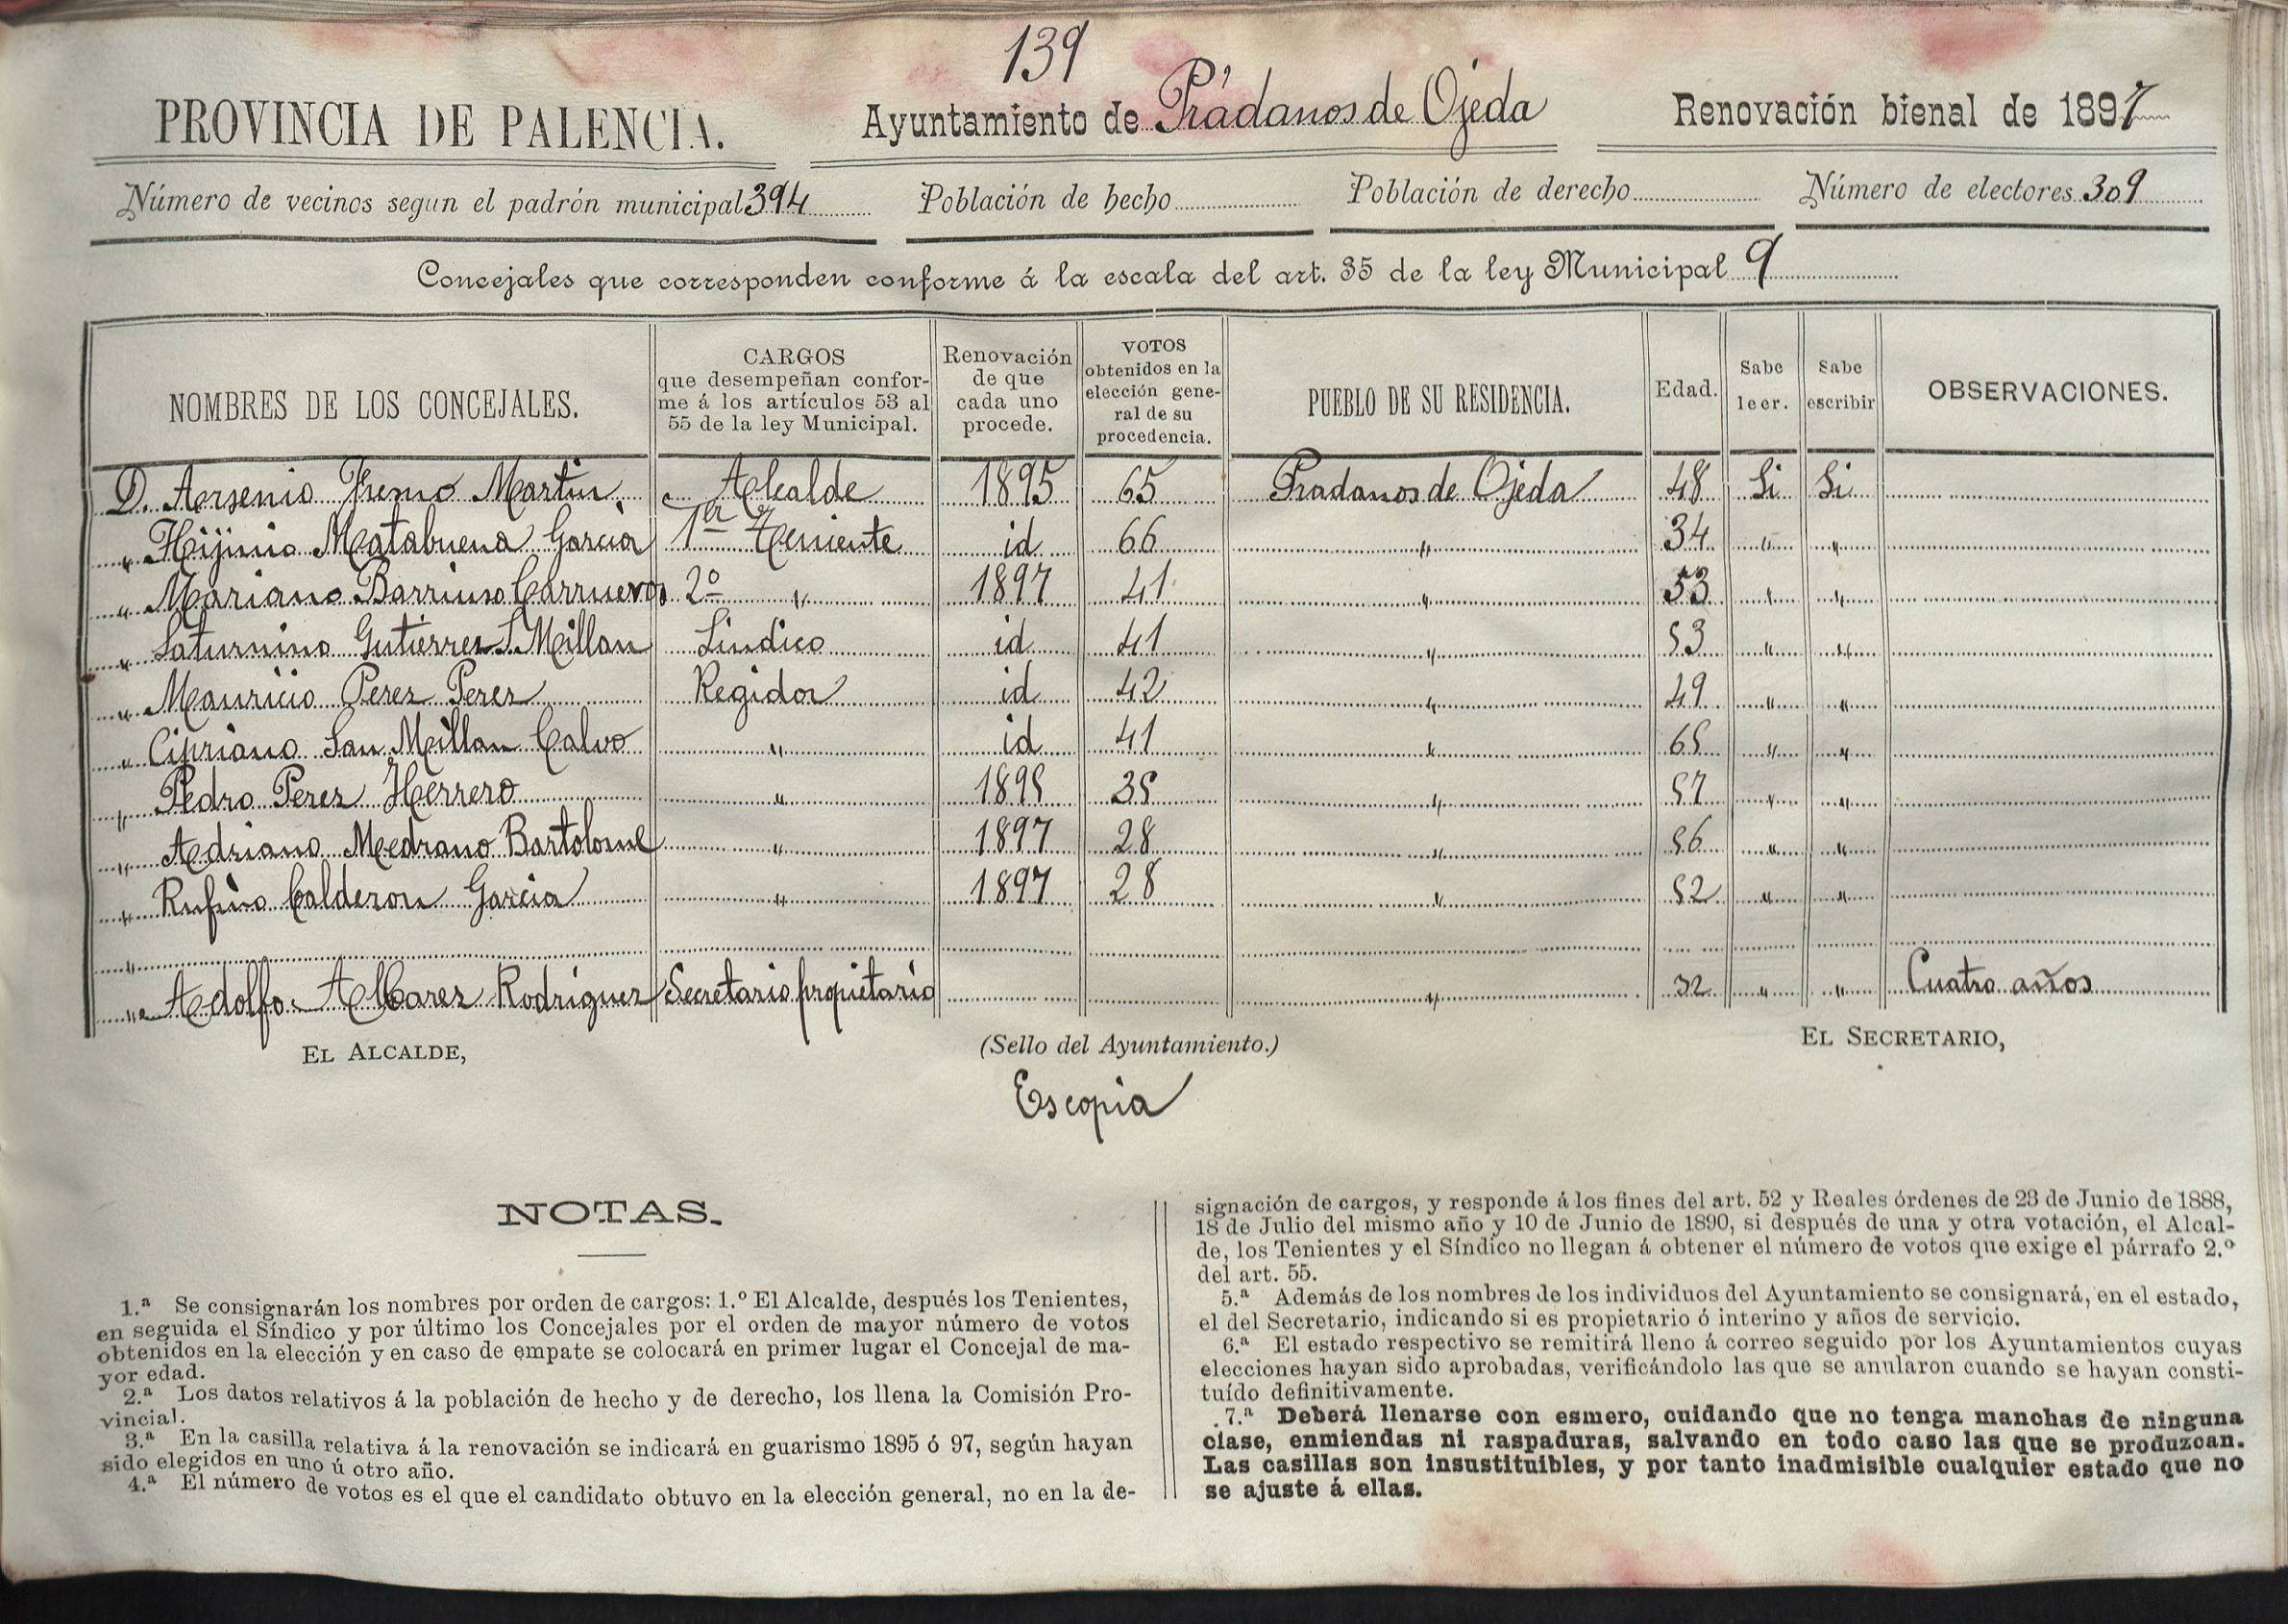 139
PROVINCIA DE PALENCIA. Ayuntamiento de Prádanos de Ojeda Renovación bienal de 1897
Número de vecinos segun el padrón municipal 394 Población de hecho Población de derecho Número de electores 309
Concejales que corresponden conforme á la escala del art. 35 de la ley Municipal 9
NOMBRES DE LOS CONCEJALES. CARGOS que desempeñan conforme á los artículos 53 al 55 de la ley Municipal. Renovación de que cada uno procede. VOTOS obtenidos en la elección general de su procedencia. PUEBLO DE SU RESIDENCIA. Edad. Sabe leer. Sabe escribir OBSERVACIONES.
D. Arsenio Martin Alcalde 1895 65 Pradanos de Ojeda 48 Si Si
" Hijinio Matabuena Garcia 1er Teniente id 66 " 34 " "
" Mariano Barriuso 2º " 1897 41 " 53 " "
" Saturnino Gutierrez S. Millan Sindico id 41 " 53 " "
" Mauricio Perez Perez Regidor id 42 " 49 " "
" Cipriano San Millan Calvo " id 41 " 65 " "
" Pedro Perez Herrero " 1895 35 " 57 " "
" Adriano Medrano Bartolome " 1897 28 " 56 " "
" Rufino Calderon Garcia " 1897 28 " 52 " "
"
" Adolfo Rodriguez Secretario propietario " 32 " " Cuatro años
EL ALCALDE, (Sello del Ayuntamiento.) EL SECRETARIO,
Es copia
NOTAS.
1.ª Se consignarán los nombres por orden de cargos: 1.º El Alcalde, después los Tenientes,
en seguida el Síndico y por último los Concejales por el orden de mayor número de votos
obtenidos en la elección y en caso de empate se colocará en primer lugar el Concejal de ma-
yor edad.
2.ª Los datos relativos á la población de hecho y de derecho, los llena la Comisión Pro-
vincial.
3.ª En la casilla relativa á la renovación se indicará en guarismo 1895 ó 97, según hayan
sido elegidos en uno ú otro año.
4.ª El número de votos es el que el candidato obtuvo en la elección general, no en la de-
signación de cargos, y responde á los fines del art. 52 y Reales órdenes de 23 de Junio de 1888,
18 de Julio del mismo año y 10 de Junio de 1890, si después de una y otra votación, el Alcal-
de, los Tenientes y el Síndico no llegan á obtener el número de votos que exige el párrafo 2.º
del art. 55.
5.ª Además de los nombres de los individuos del Ayuntamiento se consignará, en el estado,
el del Secretario, indicando si es propietario ó interino y años de servicio.
6.ª El estado respectivo se remitirá lleno á correo seguido por los Ayuntamientos cuyas
elecciones hayan sido aprobadas, verificándolo las que se anularon cuando se hayan consti-
tuído definitivamente.
7.ª Deberá llenarse con esmero, cuidando que no tenga manchas de ninguna
clase, enmiendas ni raspaduras, salvando en todo caso las que se produzcan.
Las casillas son insustituibles, y por tanto inadmisible cualquier estado que no
se ajuste á ellas.